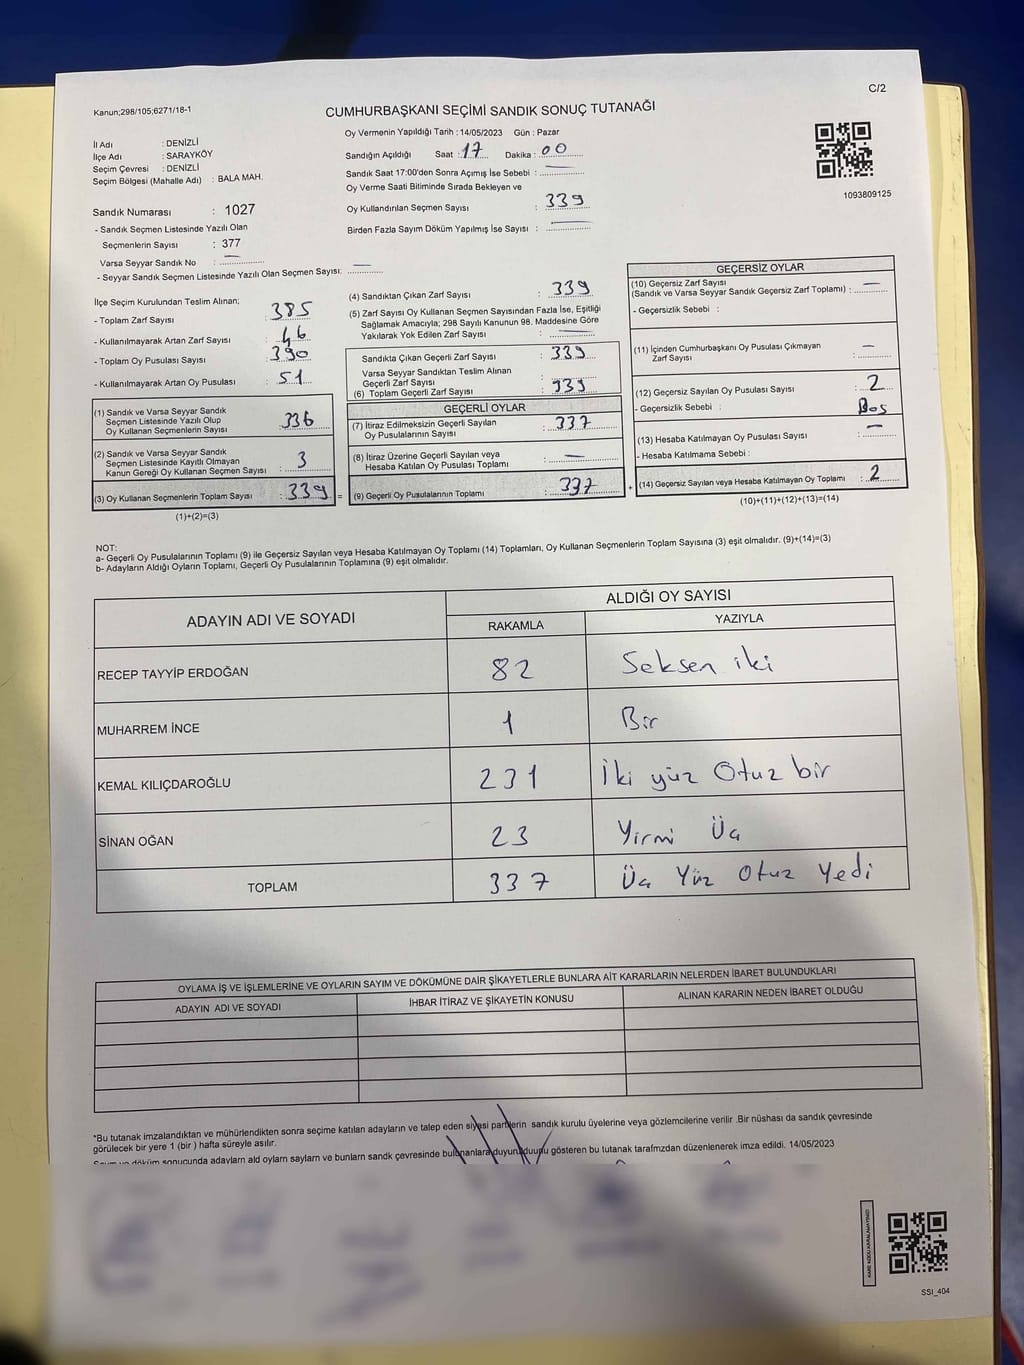 Kanun;298/105;6271/18-1
C/2
CUMHURBAŞKANI SEÇİMİ SANDIK SONUÇ TUTANAĞI
Oy Vermenin Yapıldığı Tarih : 14/05/2023 Gün : Pazar
İl Adı : DENİZLİ
İlçe Adı : SARAYKÖY
Seçim Çevresi : DENİZLİ
Seçim Bölgesi (Mahalle Adı) : BALA MAH.
Sandığın Açıldığı Saat : 17 Dakika : 00
Sandık Saat 17:00'den Sonra Açımış İse Sebebi :
Oy Verme Saati Bitiminde Sırada Bekleyen ve
Oy Kullandırılan Seçmen Sayısı : 339
Birden Fazla Sayım Döküm Yapılmış İse Sayısı : —
1093809125
Sandık Numarası : 1027
- Sandık Seçmen Listesinde Yazılı Olan
Seçmenlerin Sayısı : 377
Varsa Seyyar Sandık No : —
- Seyyar Sandık Seçmen Listesinde Yazılı Olan Seçmen Sayısı: —
İlçe Seçim Kurulundan Teslim Alınan;
- Toplam Zarf Sayısı : 385
- Kullanılmayarak Artan Zarf Sayısı : 46
- Toplam Oy Pusulası Sayısı : 390
- Kullanılmayarak Artan Oy Pusulası : 51
(1) Sandık ve Varsa Seyyar Sandık
Seçmen Listesinde Yazılı Olup
Oy Kullanan Seçmenlerin Sayısı : 336
(2) Sandık ve Varsa Seyyar Sandık
Seçmen Listesinde Kayıtlı Olmayan
Kanun Gereği Oy Kullanan Seçmen Sayısı : 3
(3) Oy Kullanan Seçmenlerin Toplam Sayısı : 339 =
(1)+(2)=(3)
(4) Sandıktan Çıkan Zarf Sayısı : 339
(5) Zarf Sayısı Oy Kullanan Seçmen Sayısından Fazla İse, Eşitliği
Sağlamak Amacıyla; 298 Sayılı Kanunun 98. Maddesine Göre
Yakılarak Yok Edilen Zarf Sayısı : —
Sandıkta Çıkan Geçerli Zarf Sayısı : 339
Varsa Seyyar Sandıktan Teslim Alınan
Geçerli Zarf Sayısı : —
(6) Toplam Geçerli Zarf Sayısı : 339
GEÇERLİ OYLAR
(7) İtiraz Edilmeksizin Geçerli Sayılan
Oy Pusulalarının Sayısı : 337
(8) İtiraz Üzerine Geçerli Sayılan veya
Hesaba Katılan Oy Pusulası Toplamı : —
(9) Geçerli Oy Pusulalarının Toplamı : 337 +
GEÇERSİZ OYLAR
(10) Geçersiz Zarf Sayısı
(Sandık ve Varsa Seyyar Sandık Geçersiz Zarf Toplamı) : —
- Geçersizlik Sebebi :
(11) İçinden Cumhurbaşkanı Oy Pusulası Çıkmayan
Zarf Sayısı : —
(12) Geçersiz Sayılan Oy Pusulası Sayısı : 2
- Geçersizlik Sebebi : Boş
(13) Hesaba Katılmayan Oy Pusulası Sayısı : —
- Hesaba Katılmama Sebebi :
(14) Geçersiz Sayılan veya Hesaba Katılmayan Oy Toplamı : 2
(10)+(11)+(12)+(13)=(14)
NOT:
a- Geçerli Oy Pusulalarının Toplamı (9) ile Geçersiz Sayılan veya Hesaba Katılmayan Oy Toplamı (14) Toplamları, Oy Kullanan Seçmenlerin Toplam Sayısına (3) eşit olmalıdır. (9)+(14)=(3)
b- Adayların Aldığı Oyların Toplamı, Geçerli Oy Pusulalarının Toplamına (9) eşit olmalıdır.
ADAYIN ADI VE SOYADI
ALDIĞI OY SAYISI
RAKAMLA YAZIYLA
RECEP TAYYİP ERDOĞAN 82 Seksen iki
MUHARREM İNCE 1 Bir
KEMAL KILIÇDAROĞLU 231 İki yüz Otuz bir
SİNAN OĞAN 23 Yirmi Üç
TOPLAM 337 Üç Yüz Otuz Yedi
OYLAMA İŞ VE İŞLEMLERİNE VE OYLARIN SAYIM VE DÖKÜMÜNE DAİR ŞİKAYETLERLE BUNLARA AİT KARARLARIN NELERDEN İBARET BULUNDUKLARI
ADAYIN ADI VE SOYADI İHBAR İTİRAZ VE ŞİKAYETİN KONUSU ALINAN KARARIN NEDEN İBARET OLDUĞU
*Bu tutanak imzalandıktan ve mühürlendikten sonra seçime katılan adayların ve talep eden siyasi partilerin sandık kurulu üyelerine veya gözlemcilerine verilir .Bir nüshası da sandık çevresinde
görülecek bir yere 1 (bir ) hafta süreyle asılır.
Sayım ve döküm sonucunda adayların ald oylarn sayların ve bunların sandk çevresinde bulunanlara duyurulduğunu gösteren bu tutanak tarafmızdan düzenlenerek imza edildi. 14/05/2023
SSI_404